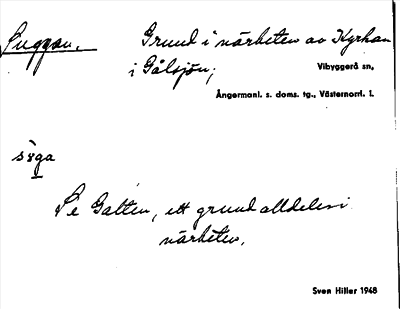 Suggan. Grund i närheten av Kyrkan
i Gålsjön;
Vibyggerå sn,
Ångermanl. s. doms. tg., Västernorrl. l.
sỿga
Se Galten, ett grund alldeles i
närheten.
Sven Hiller 1948